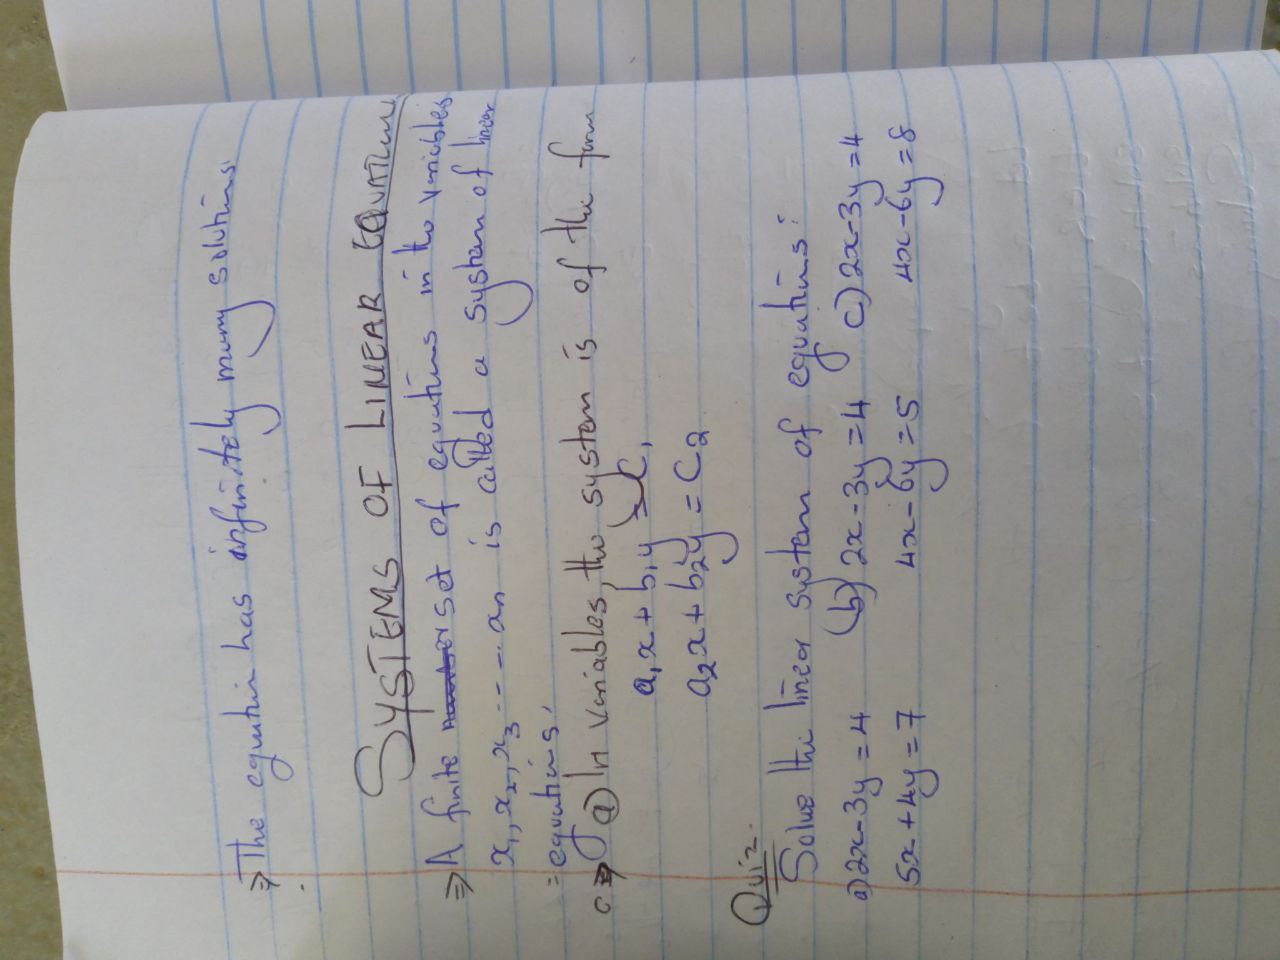 ⇒ The equation has infinitely many solutions.
SYSTEMS OF LINEAR EQUATIONS
⇒ A finite set of equations in the variables
x₁, x₂, x₃ ---- an is called a system of linear
= equations.
⇒ a) In variables, the system is of the form
a₁x + b₁y = C₁
a₂x + b₂y = C₂
Quiz.
Solve the linear system of equations:
a) 2x - 3y = 4 (b) 2x - 3y = 4 c) 2x - 3y = 4
5x + 4y = 7 4x - 6y = 5 4x - 6y = 8